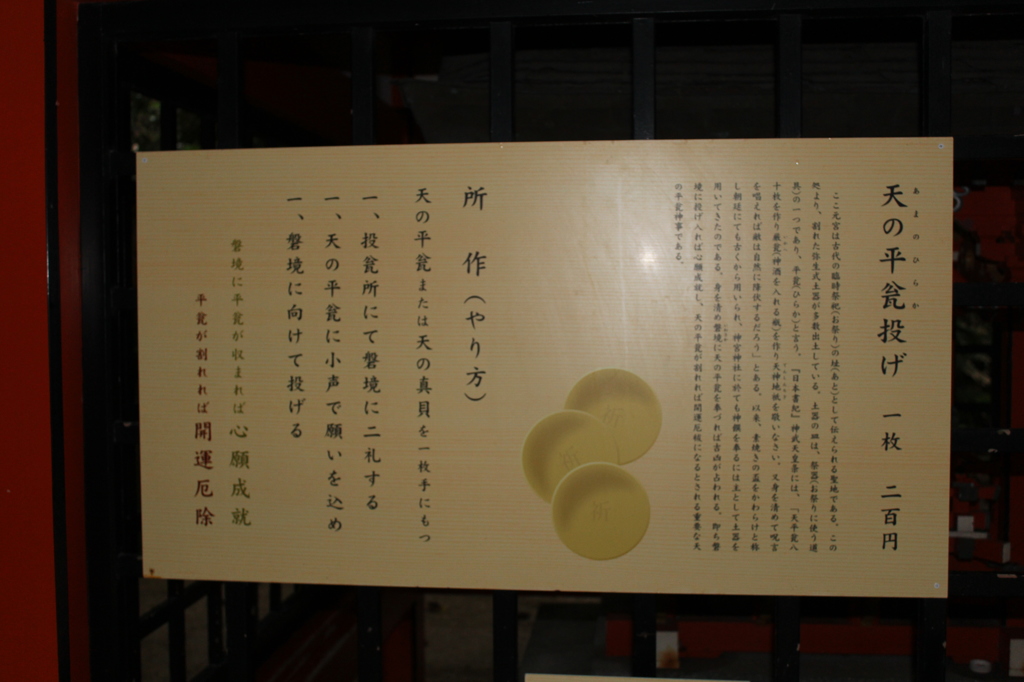 あまのひらか
天の平瓮投げ 一枚 二百円
ここ元宮は古代の臨時祭祀(お祭り)の址(あと)として伝えられる聖地である。この
処より、割れた弥生式土器が多数出土している。土器の皿は、祭器(お祭りに使う道
具)の一つであり、平瓮(ひらか)と言う。『日本書紀』神武天皇条には、「天平瓮八
十枚を作り厳瓮(神酒を入れる瓶)を作り天神地祇を敬いなさい。又身を清めて呪言
を唱えれば敵は自然に降伏するだろう」とある。以来、素焼きの盃をかわらけと称
し朝廷にても古くから用いられ、神宮神社に於ても神饌を奉るには主として土器を
用いてきたのである。身を清め磐境に天の平瓮を奉づれば吉凶が占われる。即ち磐
境に投げ入れば心願成就し、天の平瓮が割れれば開運厄祓になるとされる重要な天
の平瓮神事である。
祈
祈
祈
所 作(やり方)
天の平瓮または天の真貝を一枚手にもつ
一、投瓮所にて磐境に二礼する
一、天の平瓮に小声で願いを込め
一、磐境に向けて投げる
磐境に平瓮が収まれば心願成就
平瓮が割れれば開運厄除